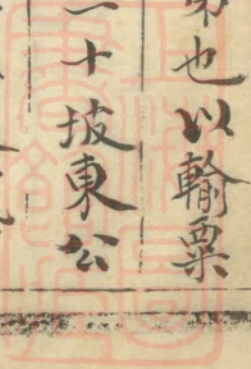 弟也以輸粟
一十坡東公